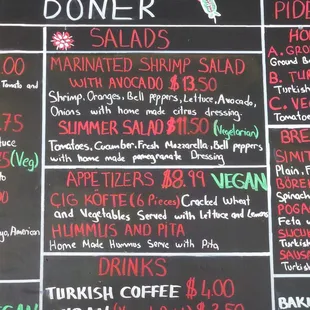 DÖNER
SALADS
MARINATED SHRIMP SALAD
WITH AVOCADO $13.50
Shrimp, Oranges, Bell peppers, Lettuce, Avocado,
Onions with home made citrus dressing.
SUMMER SALAD $11.50 (Vegetarian)
Tomatoes, Cucumber, Fresh Mozzarella, Bell peppers
with home made pomegranate Dressing
APPETIZERS $8.99 VEGAN
ÇIG KÖFTE (6 Pieces) Cracked Wheat
and Vegetables Served with Lettuce and Lemons
HUMMUS AND PITA
Home Made Humus Serve with Pita
DRINKS
TURKISH COFFEE $4.00
.00
Tomato and
.75
(Veg)
American
VEGAN
PIDE
A. GRO
Ground B
B. TU
Turkish
C. VE
Tomatoe
BRE
SIMIT
Plain, F
BÖRE
Spinac
POGA
Feta w
SUCU
Turkish
SAUS
Turkish
BAK